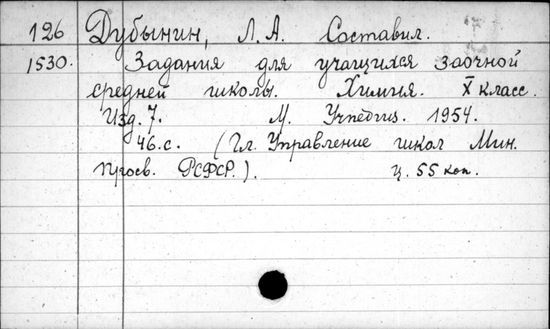 126 Дубынин, Л. А. Составил.
1530. Задания для учащихся заочной
средней школы. Химия. X класс.
Изд. 7. М. Учпедгиз. 1954.
46.с. (Гл. Управление школ Мин.
Просв. РСФСР.). Ц. 55 коп.